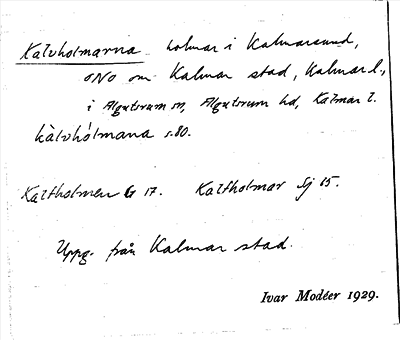 Kalvholmarna holmar i Kalmarsund,
ONO om Kalmar stad, Kalmar l.,
i Algutsrum sn, Algutsrum hd, Kalmar l.
kàlvhólmana s.80.
Kalfholmen G 17. Kalfholmar Sj 15.
Uppg. från Kalmar stad.
Ivar Modéer 1929.